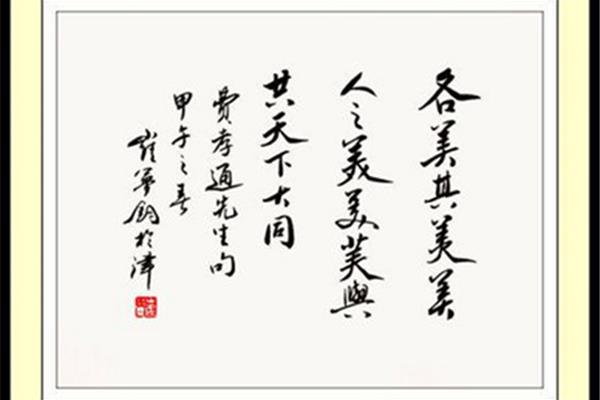 各美其美美
人之美美美與
共天下大同
費孝通先生句
甲午之春
崔於津